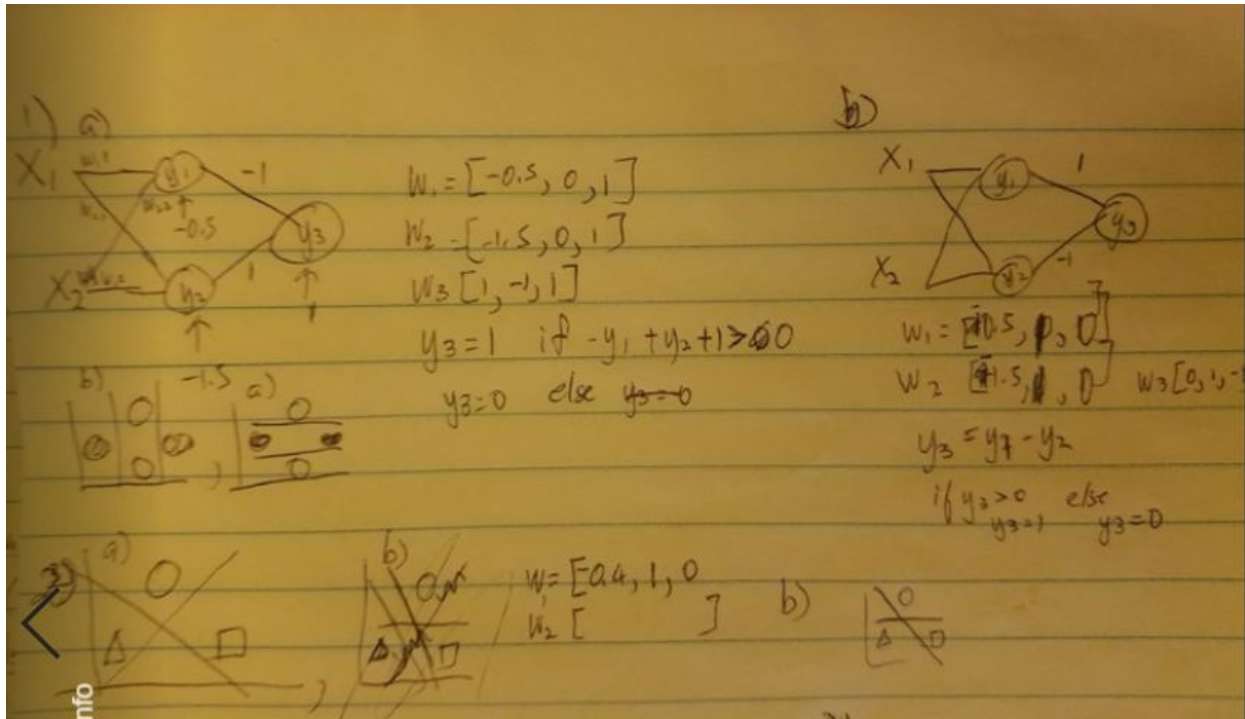 1) a)
X1 -1
y1
-0.5
y3
X2 1
y2
1
-1.5
W1 = [-0.5, 0, 1]
W2 = [-1.5, 0, 1]
W3 [1, -1, 1]
y3 = 1 if -y1 + y2 + 1 > 0
y3 = 0 else y3 = 0
b) a)
b)
X1 1
y1
y3
X2 -1
y2
W1 = 0.5, 0
W2 1.5, 0 W3 [0, 1, -1
y3 = y1 - y2
if y3 > 0 else
y3 = 1 y3 = 0
3) a)
b)
W1 = [-0.4, 1, 0
W2 [ ]
b)
nfo